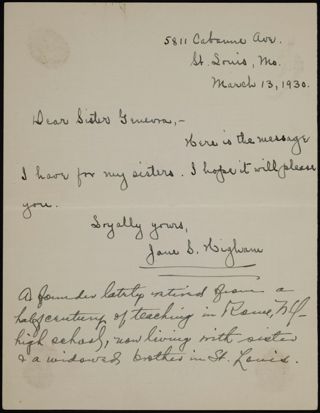 5811 Cabanne Ave.
St. Louis, Mo.
March 13, 1930.
Dear Sister Genevra,-
Here is the message
I have for my sisters. I hope it will please
you.
Loyally yours,
Jane S. Higham
A founder lately retired from a
half century of teaching in Rome, N.Y.
high school, now living with sister
& a widowed brother in St. Louis.